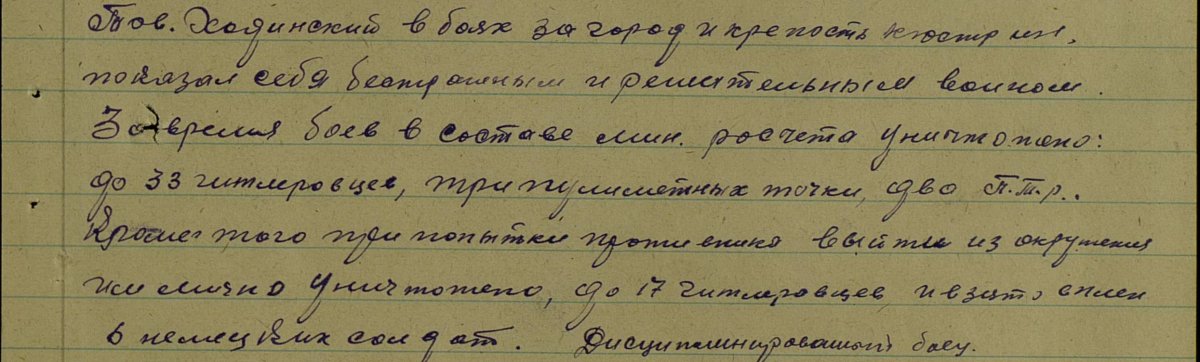 Тов. Ходинский в боях за город и крепость Кюстрин,
показал себя бесстрашным и решительным воином.
За время боев в составе мин. расчета уничтожено:
до 33 гитлеровцев, три пулиметных точки, два П.Т.р..
Кроме того при попытки противника выйти из окружения
им лично уничтожено, до 17 гитлеровцев и взято в плен
6 немецких солдат. Дисциплинированый боец.